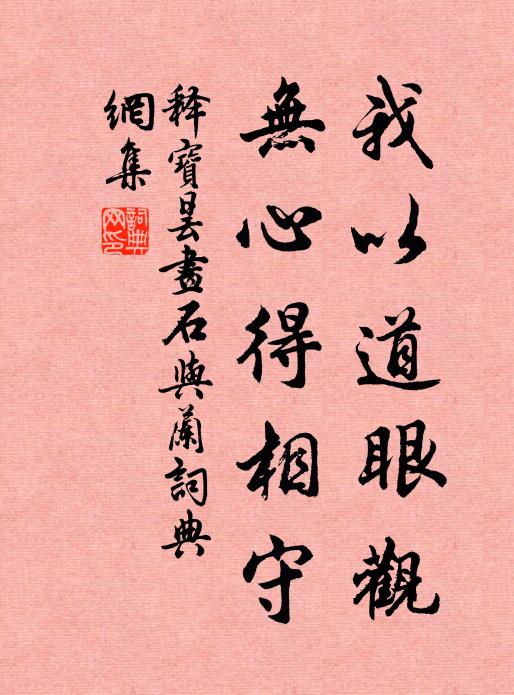 我以道眼觀
無心得相守
釋寶曇畫石與蘭詞典
網集
詞典網印